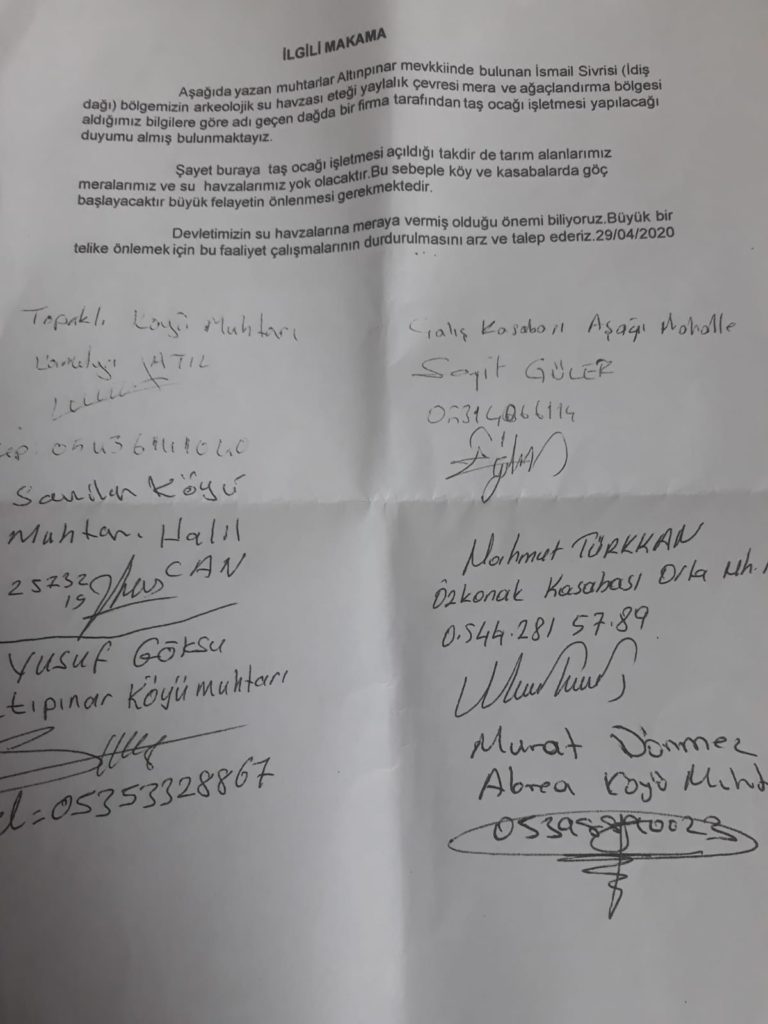 İLGİLİ MAKAMA
Aşağıda yazan muhtarlar Altınpınar mevkkiinde bulunan İsmail Sivrisi (İdiş
dağı) bölgemizin arkeolojik su havzası eteği yaylalık çevresi mera ve ağaçlandırma bölgesi
aldığımız bilgilere göre adı geçen dağda bir firma tarafından taş ocağı işletmesi yapılacağı
duyumu almış bulunmaktayız.
Şayet buraya taş ocağı işletmesi açıldığı takdir de tarım alanlarımız
meralarımız ve su havzalarımız yok olacaktır.Bu sebeple köy ve kasabalarda göç
başlayacaktır büyük felayetin önlenmesi gerekmektedir.
Devletimizin su havzalarına meraya vermiş olduğu önemi biliyoruz.Büyük bir
telike önlemek için bu faaliyet çalışmalarının durdurulmasını arz ve talep ederiz.29/04/2020
Topaklı Köyü Muhtarı
ATIL
Sarılar Köyü
Muhtarı Halil
CAN
25732
15
Yusuf GÖKSU
tıpınar Köyü muhtarı
l=05353328867
Çalış Kasabası Aşağı Mahalle
Seyit GÜLER
Mahmut TÜRKKAN
Özkonak Kasabası Orta Mh.
0.544.281 57.89
Murat Dönmez
Köyü Muht